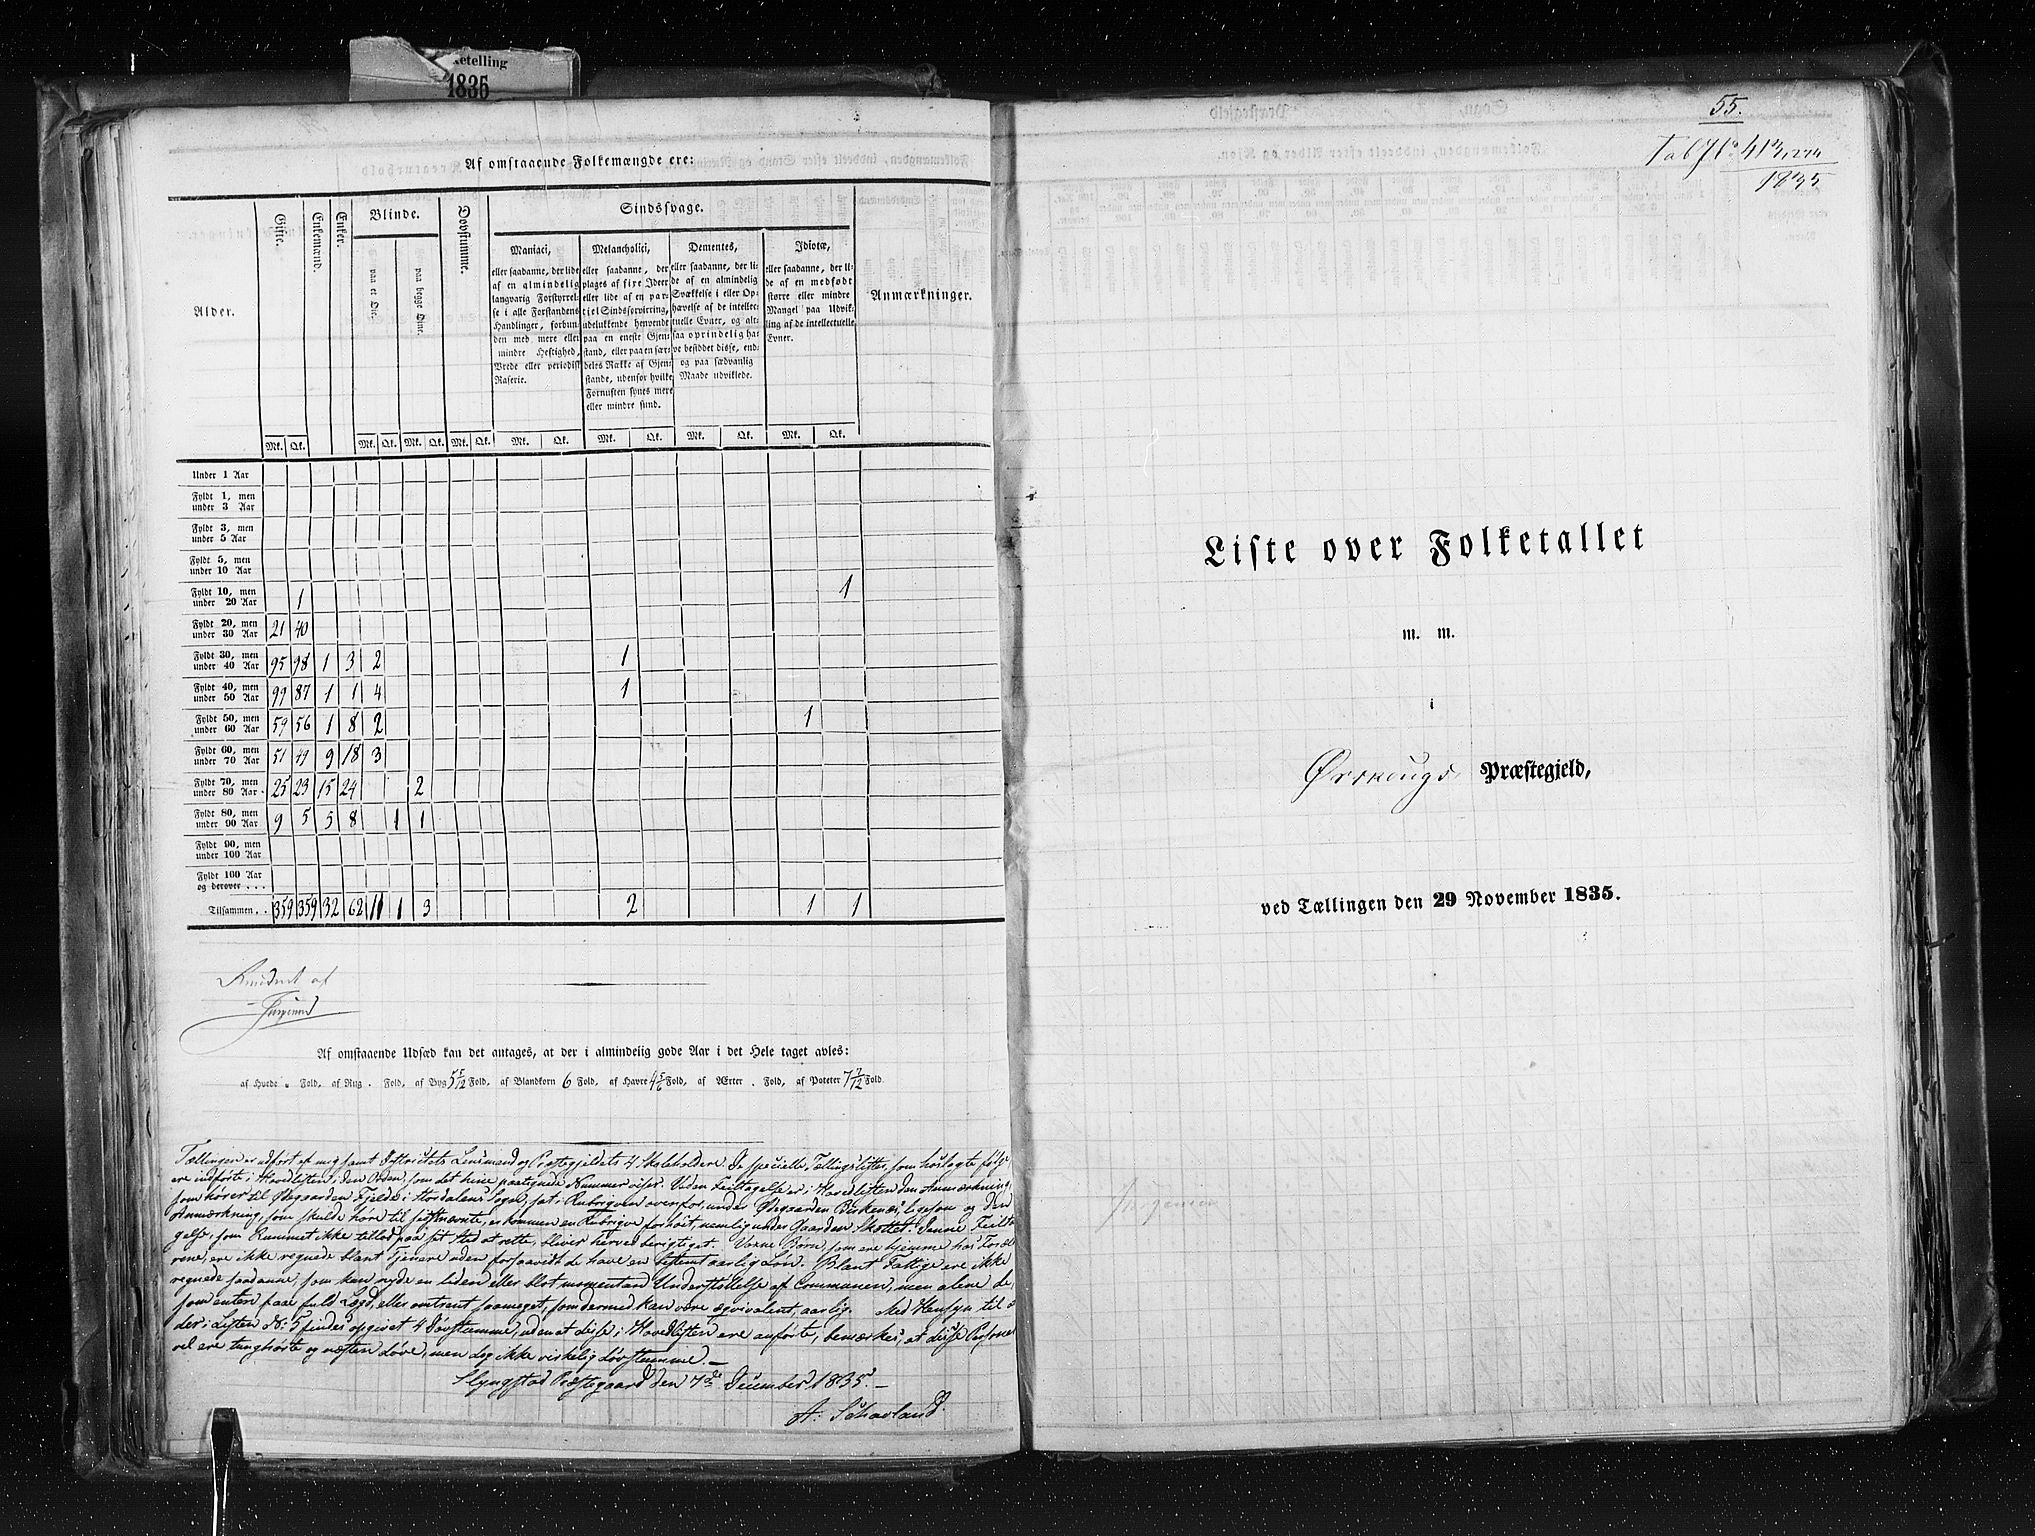 ketelling
1835
Af omstaaende Folkemængde ere:
Alder.
Gifte.
Enkemænd.
Enker.
Blinde.
paa et Øie.
paa begge Øine.
Døvstumme.
Sindssvage.
Maniaci,
eller saadanne, der lide
af en almindelig
langvarig Forstyrrel-
se i alle Forstandens
Handlinger, forbun-
den med mere eller
mindre Heftighed,
Vrede eller periodisk
Raserie.
Melancholici,
eller saadanne, der
plages af fixe Ideer
eller lide af en par-
tiel Sindsforvirring,
udelukkende henvendt
paa en eneste Gjen-
stand, eller paa en sær-
deles Række af Gjen-
stande, udenfor hvilke
Fornuften synes mere
eller mindre sund.
Dementes,
eller saadanne, der li-
de af en almindelig
Svækkelse i eller Op-
hævelse af de intellec-
tuelle Evner, og alt-
saa oprindelig ha-
ve besiddet disse, end-
og paa sædvanlig
Maade udviklede.
Idiotæ,
eller saadanne, der li-
de af en medfødt
større eller mindre
Mangel paa Udvik-
ling af de intellectuelle
Evner.
Anmærkninger.
Mk. Qk. Mk. Qk. Mk. Qk. Mk. Qk. Mk. Qk. Mk. Qk. Mk. Qk. Mk. Qk.
Under 1 Aar
Fyldt 1, men
under 3 Aar
Fyldt 3, men
under 5 Aar
Fyldt 5, men
under 10 Aar
Fyldt 10, men
under 20 Aar 1 1
Fyldt 20, men
under 30 Aar 21 40
Fyldt 30, men
under 40 Aar 95 98 1 3 2 1
Fyldt 40, men
under 50 Aar 99 87 1 1 4 1
Fyldt 50, men
under 60 Aar 59 56 1 8 2 1
Fyldt 60, men
under 70 Aar 51 49 9 18 3
Fyldt 70, men
under 80 Aar 25 23 15 24 2
Fyldt 80, men
under 90 Aar 9 5 5 8 1 1
Fyldt 90, men
under 100 Aar
Fyldt 100 Aar
og derover . . .
Tilsammen . . 359 359 32 62 11 1 3 2 1 1
af
Af omstaaende Udsæd kan det antages, at der i almindelig gode Aar i det Hele taget avles:
af Hvede " Fold, af Rug . Fold, af Byg 5 5/12 Fold, af Blandkorn 6 Fold, af Havre 4 5/6 Fold, af Ærter . Fold, af Poteter 7 7/12 Fold.
Tællingen er udført af mig samt Districtets Lensmand og Præstegjeldets 4 Skoleholdere. De specielle Tællingslister, som hoslagte følge,
ere indførte i Hovedlisten i den Orden, som det herpaa paategnede Nummer viser. Ved en Feiltagelse er i Hovedlisten den Anmærkning,
som hører til Ødegaarden Fjelde i Stordalens Sogn, sat i Rubrigven ovenfor, under Ødegaarden Birkenes, ligesom og den
Anmærkning, som skulde høre til sidstnævnte, er kommen en Rubrigve for høit, nemlig under Gaarden Skottet. Denne Feilta-
gelse, som Rummet ikke tillod paa sit Sted at rette, bliver herved berigtiget. Voxne Børn, som ere hjemme hos Foræl-
drene, ere ikke regnede blant Tjenere uden forsaavidt de have en bestemt aarlig Løn. Blant Fattige ere ikke
regnede saadanne, som kun nyde en liden eller blot momentan Understøttelse af Communen, men alene de,
som enten paae fuld Lægd, eller omtrent saameget, som dermed kan være æqvivalent, aarlig. Med Hensyn til at
der i Listen No 5 findes opgivet 4 Døvstumme, uden at disse i Hovedlisten ere anførte, bemærkes, at disse Personer
vel ere tunghørte og næsten døve, men dog ikke virkelig døvstumme.
Slyngstad Præstegaard den 7de December 1835.
A. Schavland.
55.
Tab 7 1
1835
Liste over Folketallet
m. m.
i
Ørskougs Præstegjeld,
ved Tællingen den 29 November 1835.